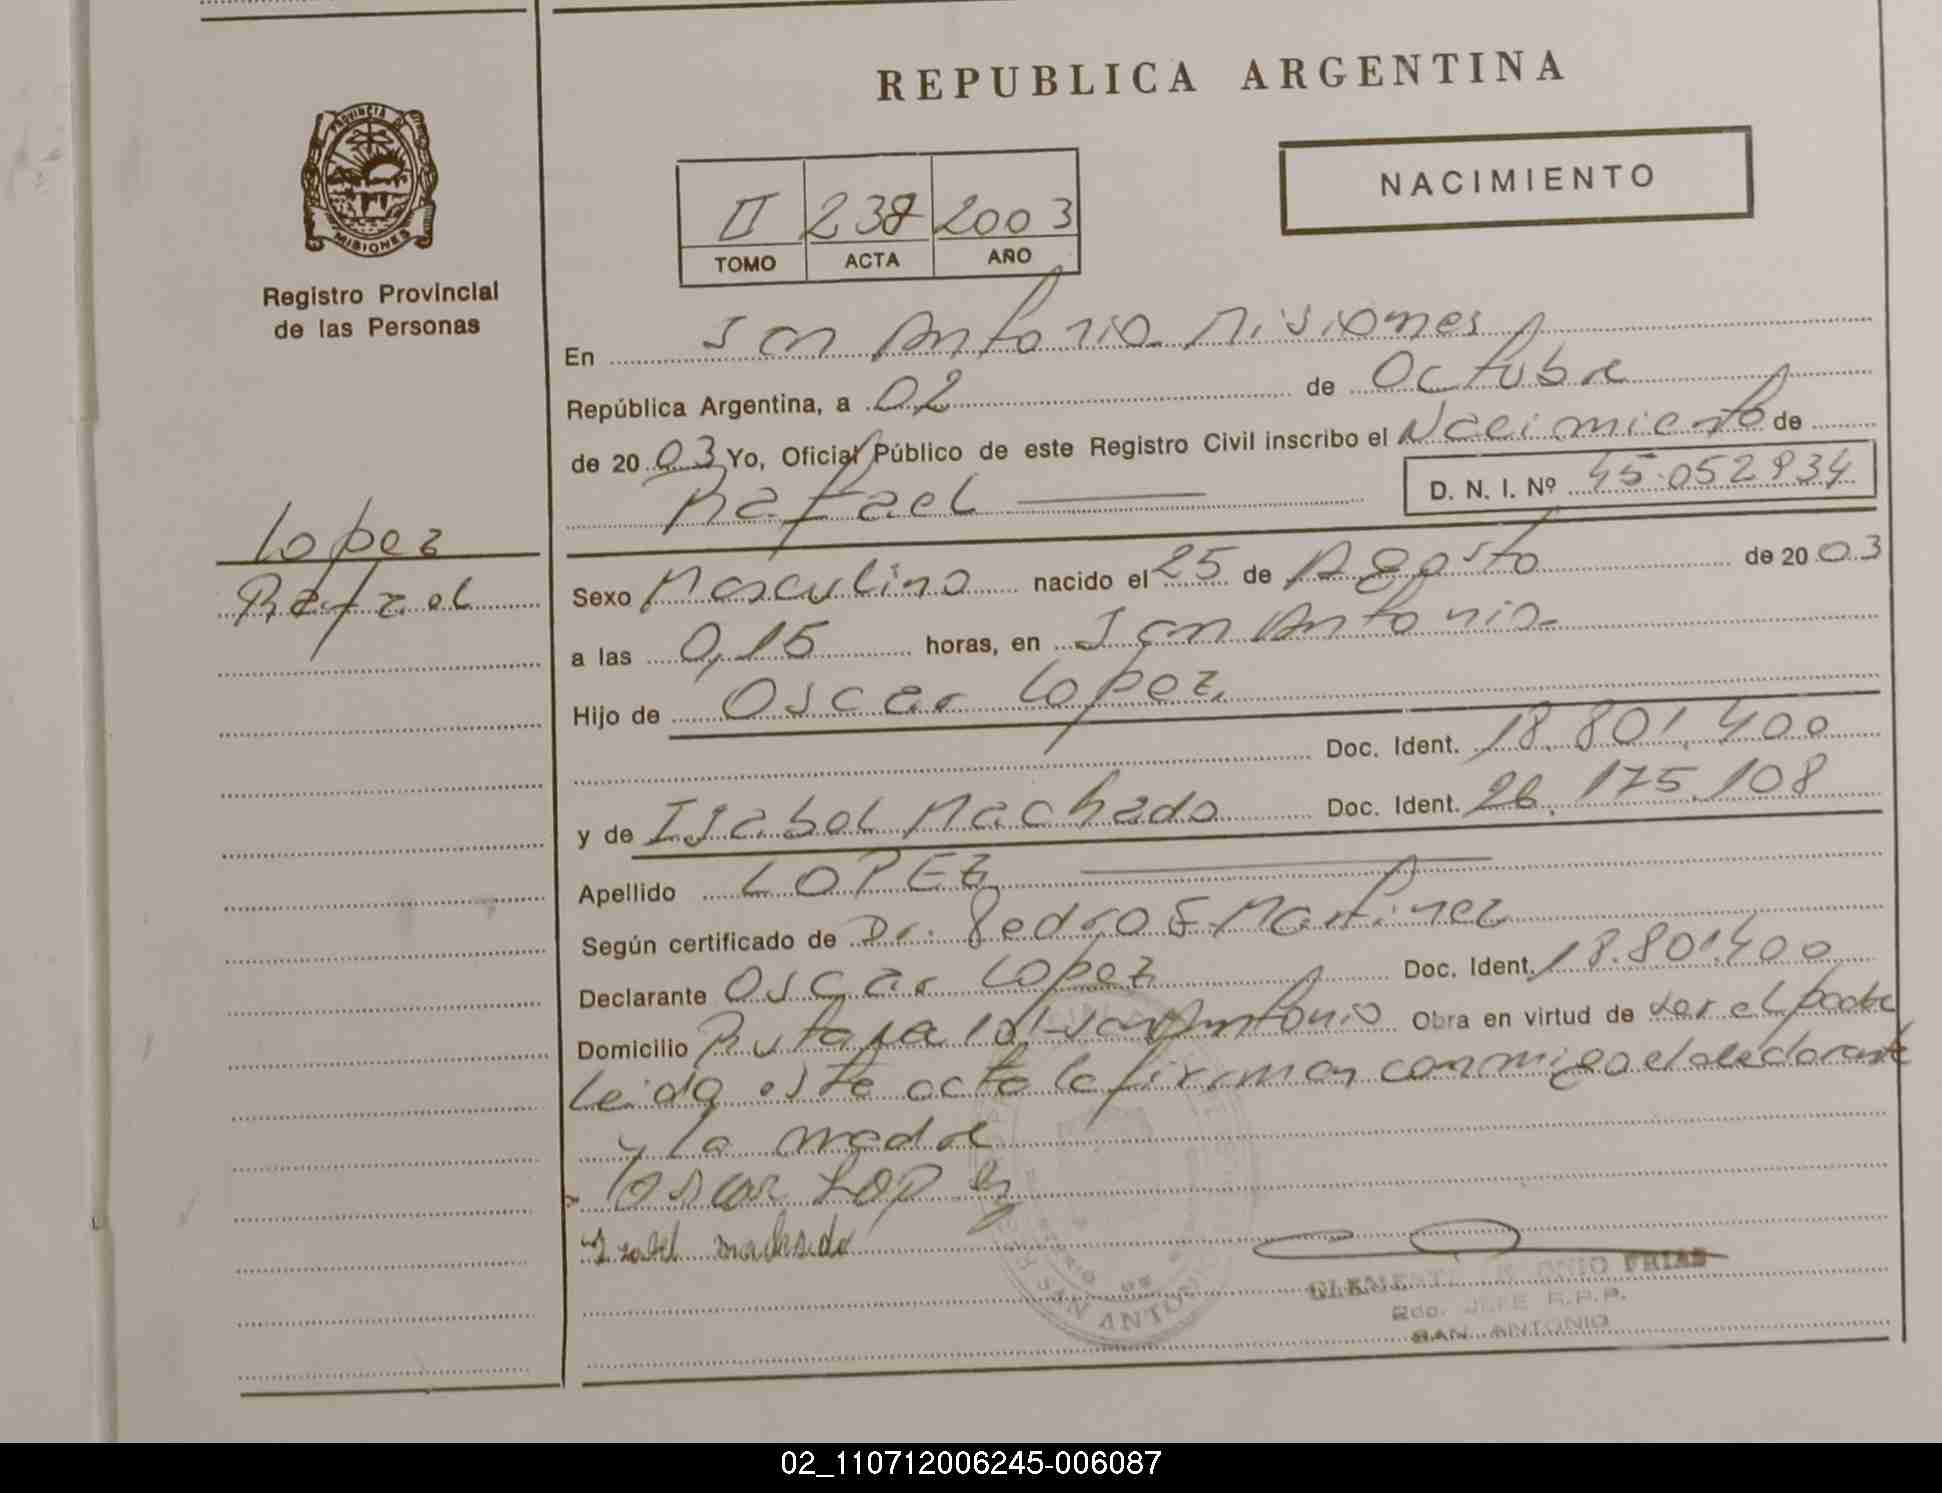 REPUBLICA ARGENTINA
NACIMIENTO
PROVINCIA DE
MISIONES
Registro Provincial
de las Personas
II 238 2003
TOMO ACTA AÑO
En San Antonio Misiones
República Argentina, a 02 de Octubre
de 20 03 Yo, Oficial Público de este Registro Civil inscribo el Nacimiento de
Rafael D. N. I. Nº 45.052934
Lopez
Rafael
Sexo Masculino nacido el 25 de Agosto de 20 03
a las 0,15 horas, en San Antonio
Hijo de Oscar Lopez
Doc. Ident. 18.801.400
y de Isabel Machado Doc. Ident. 26.175.108
Apellido LOPEZ
Según certificado de Dr. Pedro E Martinez
Declarante Oscar Lopez Doc. Ident. 18.801.400
Domicilio Ruta 101 San Antonio Obra en virtud de ser el padre
Leida este acta la firman conmigo el declarante
y la madre
Oscar Lopez
SAN ANTONIO
CLEMENTE ANTONIO FRIAS
JEFE R.P.P.
SAN ANTONIO
02_110712006245-006087